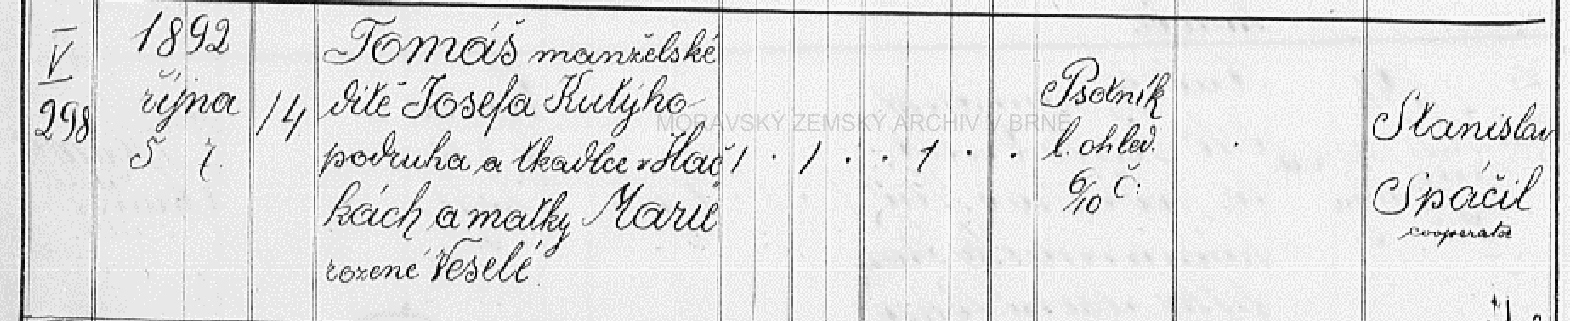 V
298
1892
října
5 7.
14
Tomáš manželské
dítě Josefa Kutýho
podruha a tkadlce v Hač
kách a matky Marie
rozené Veselé.
1 . 1 . . 1 . . .
Psotník
l. ohled.
6/10 Č.
Stanislav
Spáčil
cooperator
MORAVSKÝ ZEMSKÝ ARCHIV V BRNĚ